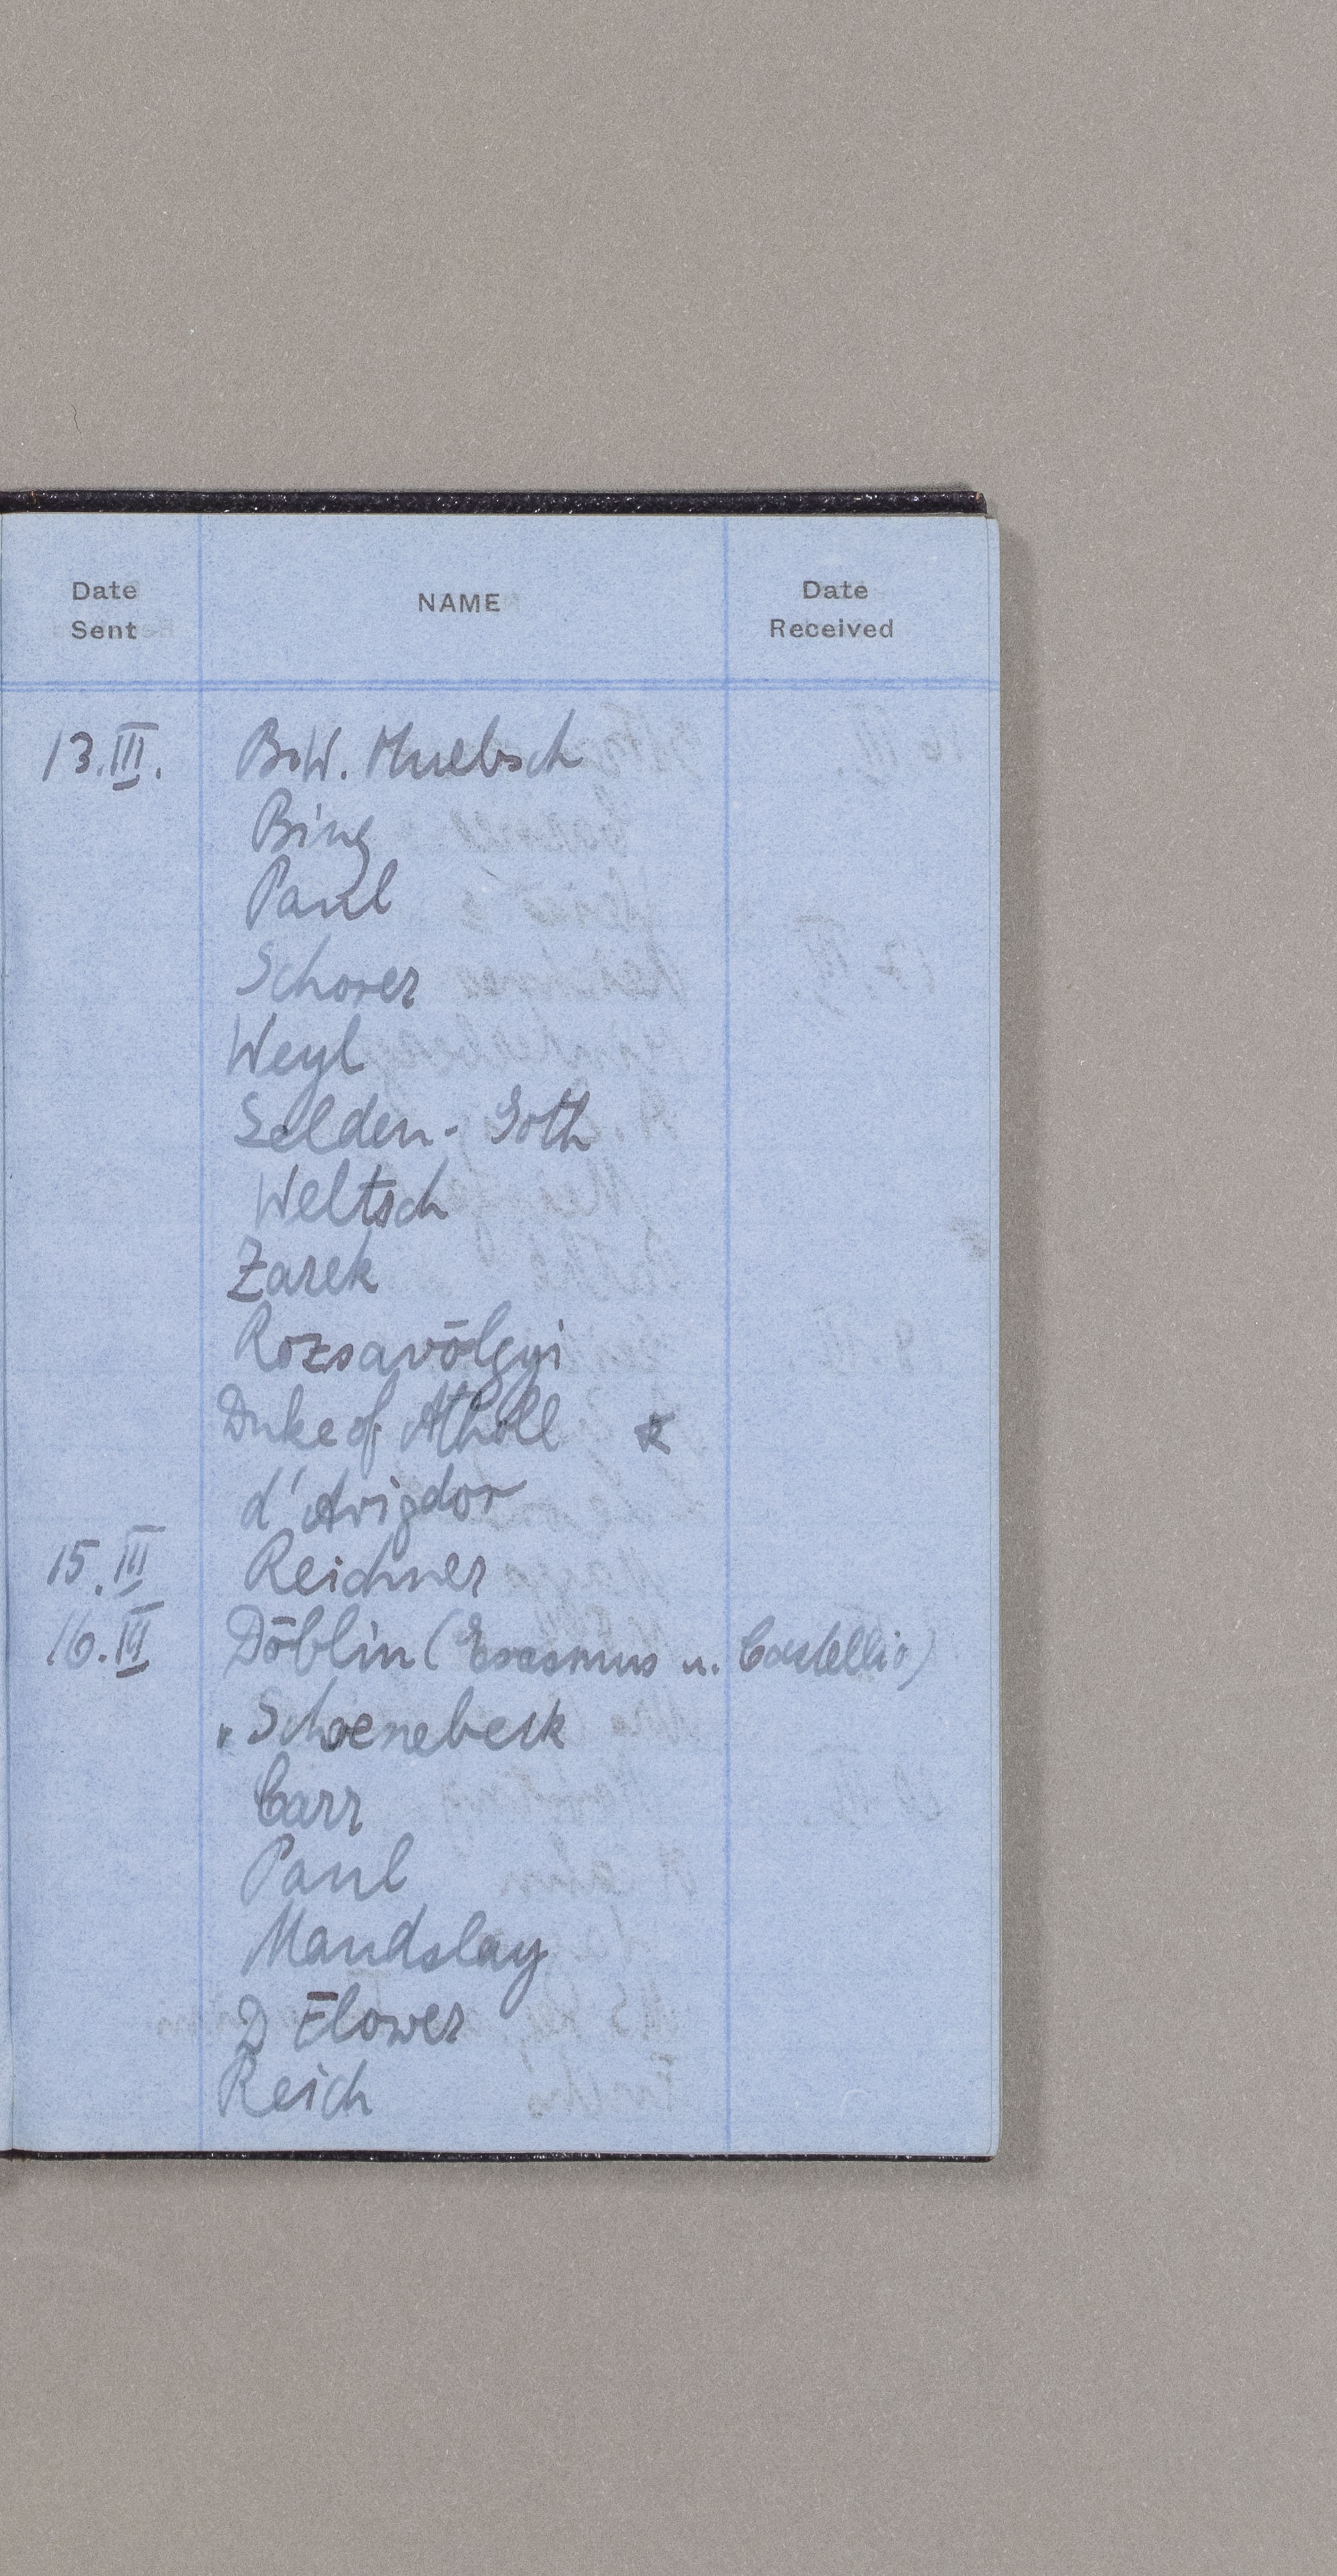 Date Sent NAME Date Received
13.III. B.W. Huebsch
Bing
Paul
Schorer
Weyl
Selden-Goth
Weltsch
Zarek
Rozsavölgyi
Duke of Atholl
d'Avigdor
15.III Reichner
16.III Döblin (Erasmus u. Castellio)
" Schoenebeck
Carr
Paul
Maudslay
D Flower
Reich